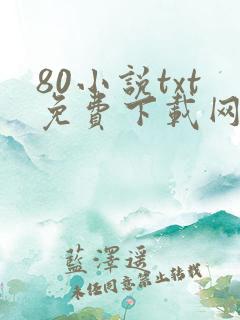 80小說txt
免費下載网
藍澤遥
未任同意禁止转载